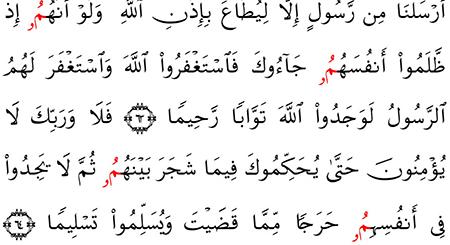 أَرْسَلْنَا مِن رَّسُولٍ إِلَّا لِيُطَاعَ بِإِذْنِ ٱللَّهِ وَلَوْ أَنَّهُمُۥ إِذ
ظَّلَمُوٓاْ أَنفُسَهُمُۥ جَآءُوكَ فَٱسْتَغْفَرُواْ ٱللَّهَ وَٱسْتَغْفَرَ لَهُمُ
ٱلرَّسُولُ لَوَجَدُواْ ٱللَّهَ تَوَّابًا رَّحِيمًا ٦٣ فَلَا وَرَبِّكَ لَا
يُؤْمِنُونَ حَتَّىٰ يُحَكِّمُوكَ فِيمَا شَجَرَ بَيْنَهُمُۥ ثُمَّ لَا يَجِدُواْ
فِىٓ أَنفُسِهِمُۥ حَرَجًا مِّمَّا قَضَيْتَ وَيُسَلِّمُواْ تَسْلِيمًا ٦٤